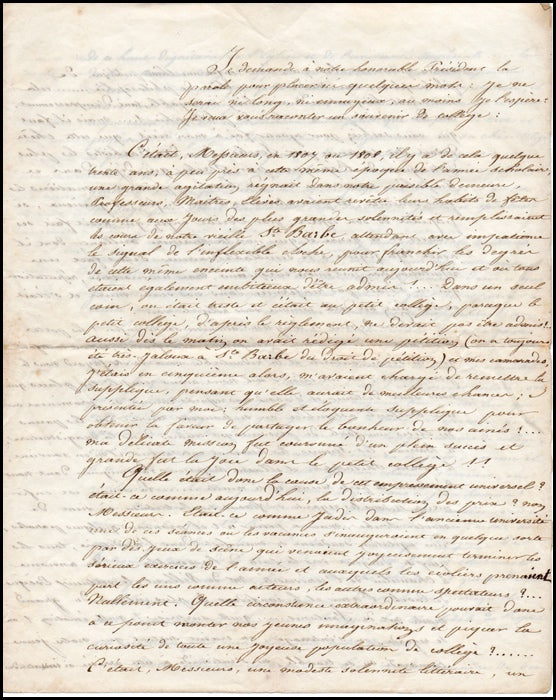 Je demande à notre honorable Président la
parole pour placer ici quelques mots : Je ne
serai ni long, ni ennuyeux, au moins je l'espère :
Je veux vous raconter un souvenir de collège :
C'était, Messieurs, en 1807 ou 1808, il y a de cela quelque
trente ans, à peu près à cette même époque de l'année scholaire,
une grande agitation régnait dans notre paisible demeure,
Professeurs, Maîtres, Elèves avaient revêtu leurs habits de fêter
comme aux jours des plus grandes solennités et remplissaient
les cours de notre vieille Ste Barbe attendant avec impatience
le signal de l'inflexible cloche pour franchir les degrés
de cette même enceinte qui nous réunit aujourd'hui et où tous
étaient également ambitieux d'être admis !... Dans un seul
coin, on était triste et c'était au petit collège, parceque le
petit collège, d'après le règlement, ne devait pas être admis !
aussi dès le matin, on avait rédigé une pétition (on a toujours
été très jaloux à Ste Barbe du Droit de pétition) et mes camarades,
j'étais en cinquième alors, m'avaient chargé de remettre la
supplique, pensant qu'elle aurait de meilleures chances,
présentée par moi : humble et éloquente supplique pour
obtenir la faveur de partager le bonheur de nos aînés !...
ma délicate mission fut couronnée d'un plein succès et
grande fut la joie dans le petit collège !!
Quelle était donc la cause de cet empressement universel ?
était-ce comme aujourd'hui, la distribution des prix ? non,
Messieurs. Etait-ce comme jadis dans l'ancienne université
une de ces séances où les vacances s'inauguraient en quelque sorte
par des jeux de scène qui venaient joyeusement terminer les
sérieux exercices de l'année et auxquels les écoliers prenaient
part les uns comme acteurs, les autres comme spectateurs ?...
Nullement. Quelle circonstance extraordinaire pouvait donc
à ce point monter nos jeunes imaginations et piquer la
curiosité de toute une joyeuse population de collège ?......
C'était, Messieurs, une modeste solennité littéraire, un